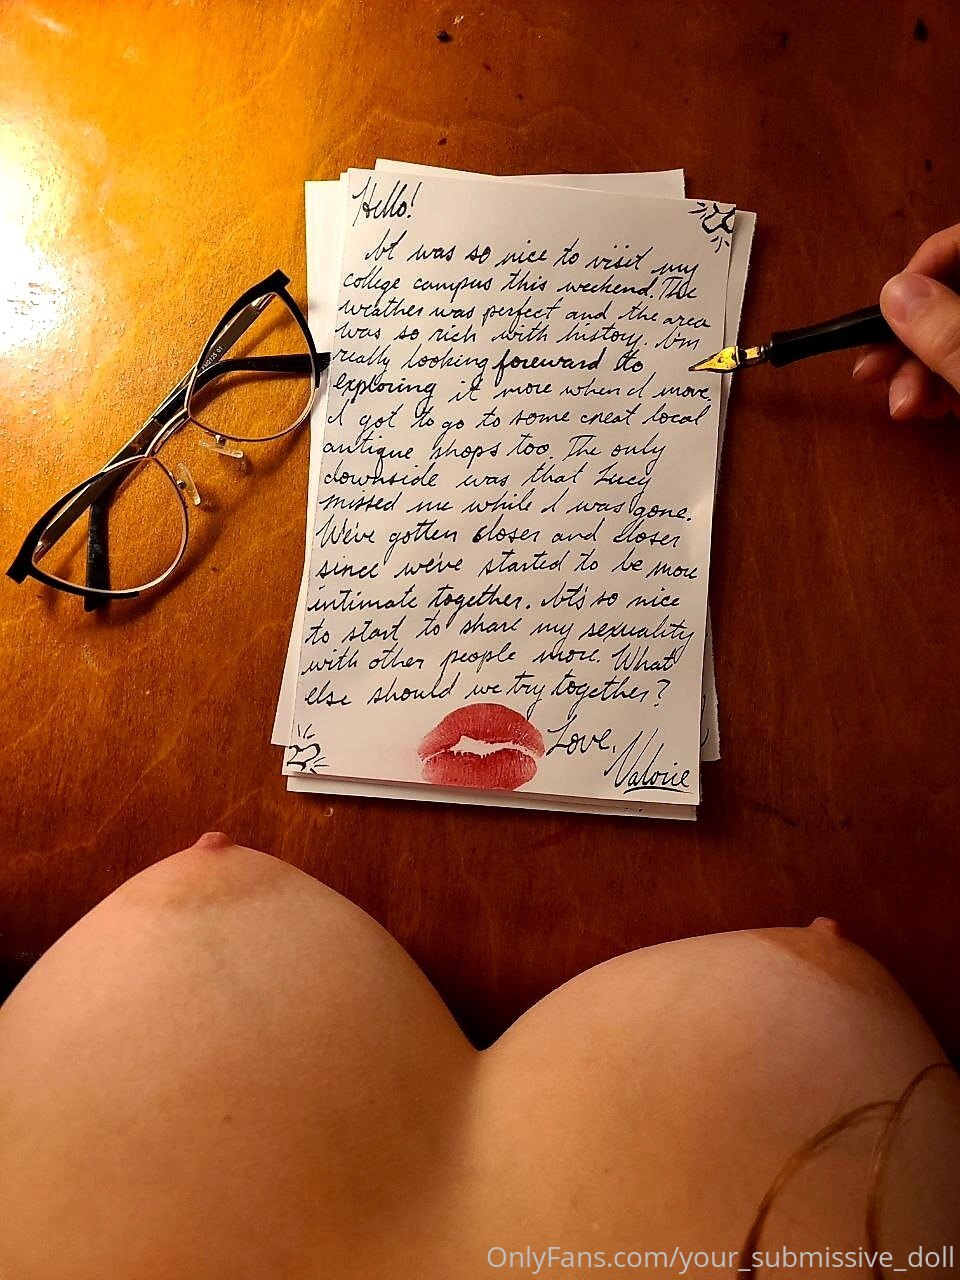 Hello!
It was so nice to visit my
college campus this weekend. The
weather was perfect and the area
was so rich with history. I'm
really looking foreward to
exploring it more when I move.
I got to go to some cneat local
antique shops too. The only
downside was that Lucy
missed me while I was gone.
We've gotten closer and closer
since we've started to be more
intimate together. It's so nice
to start to share my sexuality
with other people more. What
else should we try together?
Love,
Valorie
OnlyFans.com/your_submissive_doll